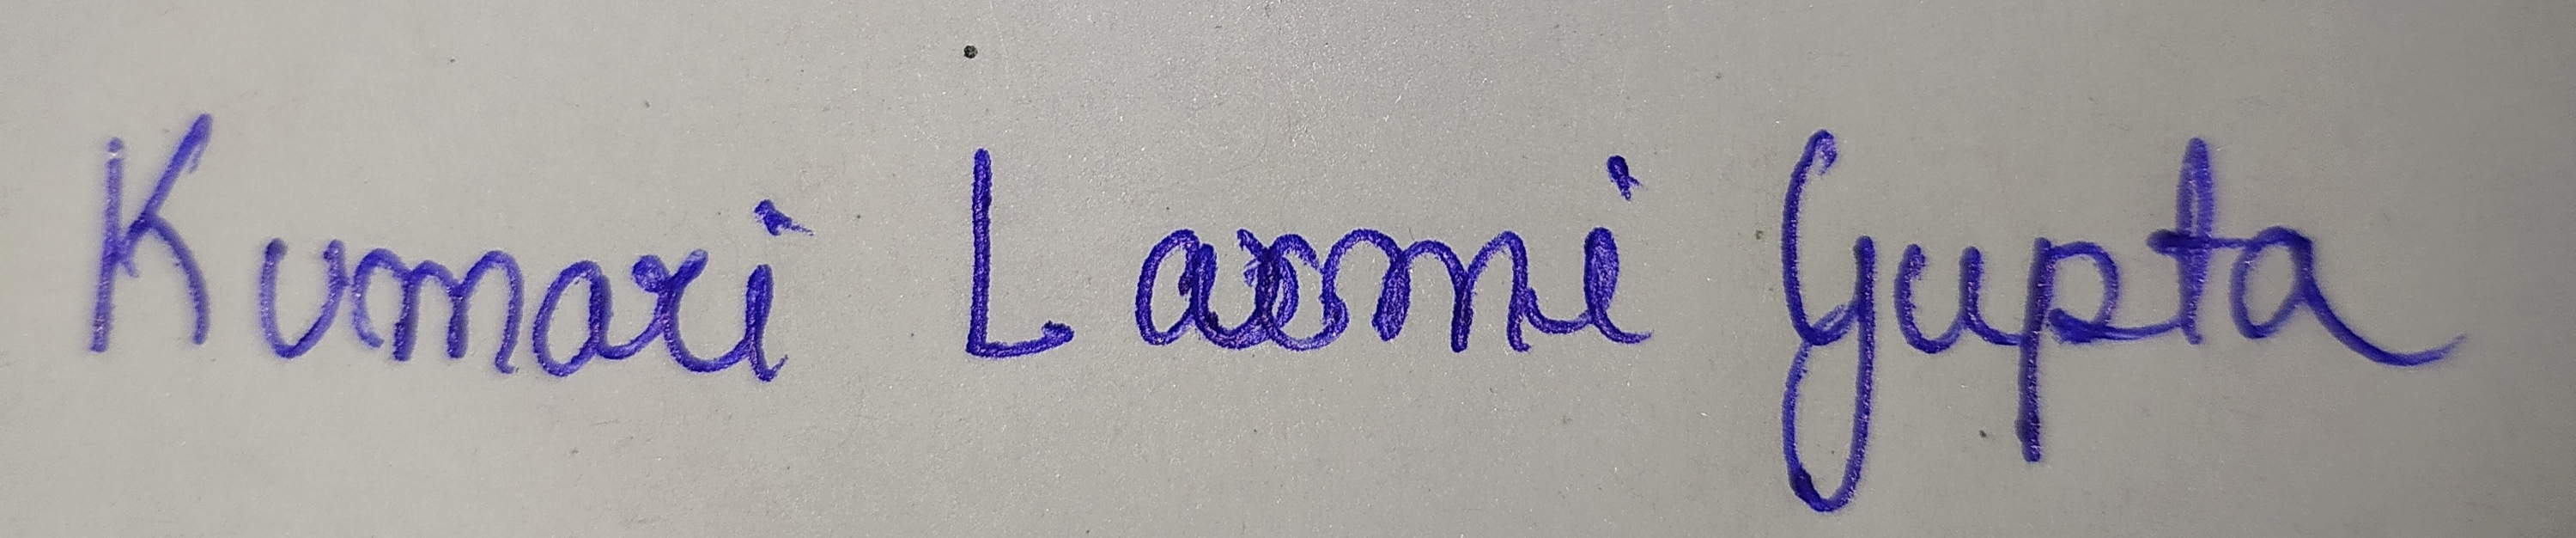 Kumari Laxmi Gupta